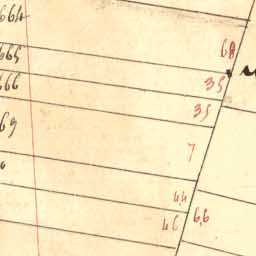 664
665
68
666
35
35
69
7
44
46
66